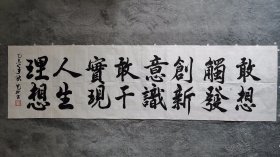 敢想
觸發
創新
意識
敢干
實現
人生
理想